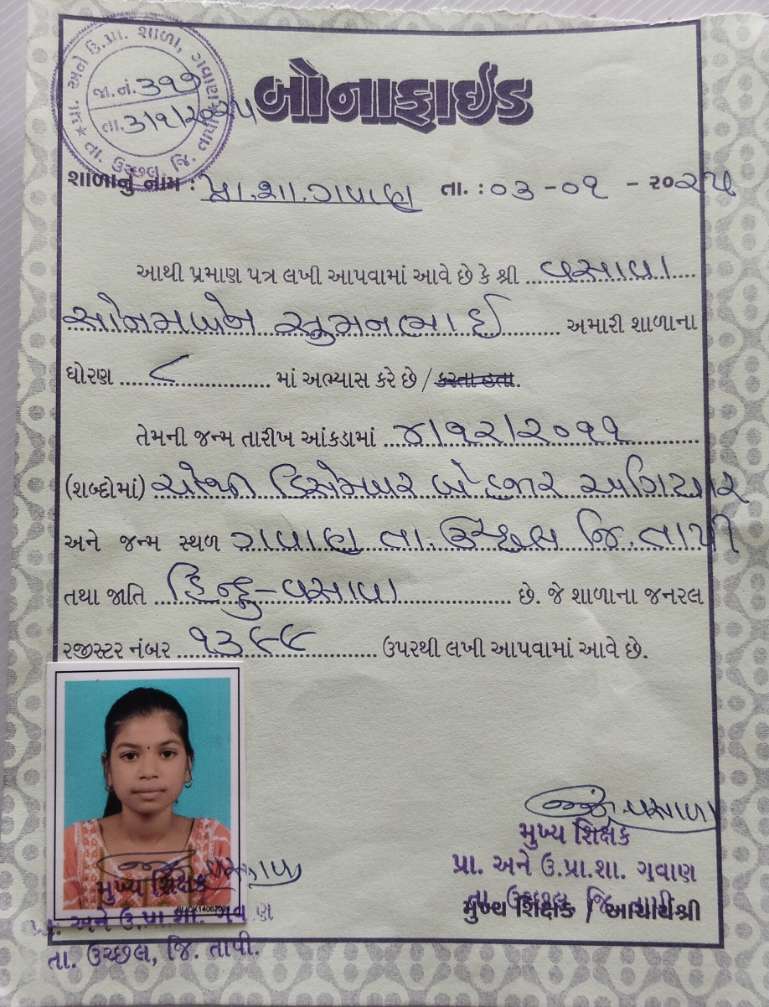 પ્રા. અને ઉ.પ્રા. શાળા, ગવાણ
જા.નં. ૩૧૭
તા. ૩/૧/૨૦૨૫
તા. ઉચ્છલ, જિ. તાપી
બોનાફાઈડ
શાળાનું નામ : પ્રા.શા. ગવાણ તા. : ૦૩ -૦૧ - ૨૦૨૫
આથી પ્રમાણ પત્ર લખી આપવામાં આવે છે કે શ્રી વસાવા
સોનમબેન સુમનભાઈ અમારી શાળાના
ધોરણ ૮ માં અભ્યાસ કરે છે / કરતા હતા.
તેમની જન્મ તારીખ આંકડામાં ૪/૧૨/૨૦૧૧
(શબ્દોમાં) ચોથી ડિસેમ્બર બે હજાર અગિયાર
અને જન્મ સ્થળ ગવાણ તા. ઉચ્છલ જિ. તાપી
તથા જાતિ હિન્દુ-વસાવા છે. જે શાળાના જનરલ
રજીસ્ટર નંબર ૧૩૯૯ ઉપરથી લખી આપવામાં આવે છે.
મુખ્ય શિક્ષક
પ્રા. અને ઉ.પ્રા.શા. ગવાણ
તા. ઉચ્છલ, જિ. તાપી.
વસાવા
મુખ્ય શિક્ષક
પ્રા. અને ઉ.પ્રા.શા. ગવાણ
તા. ઉચ્છલ જિ. તાપી
મુખ્ય શિક્ષક / આચાર્યશ્રી